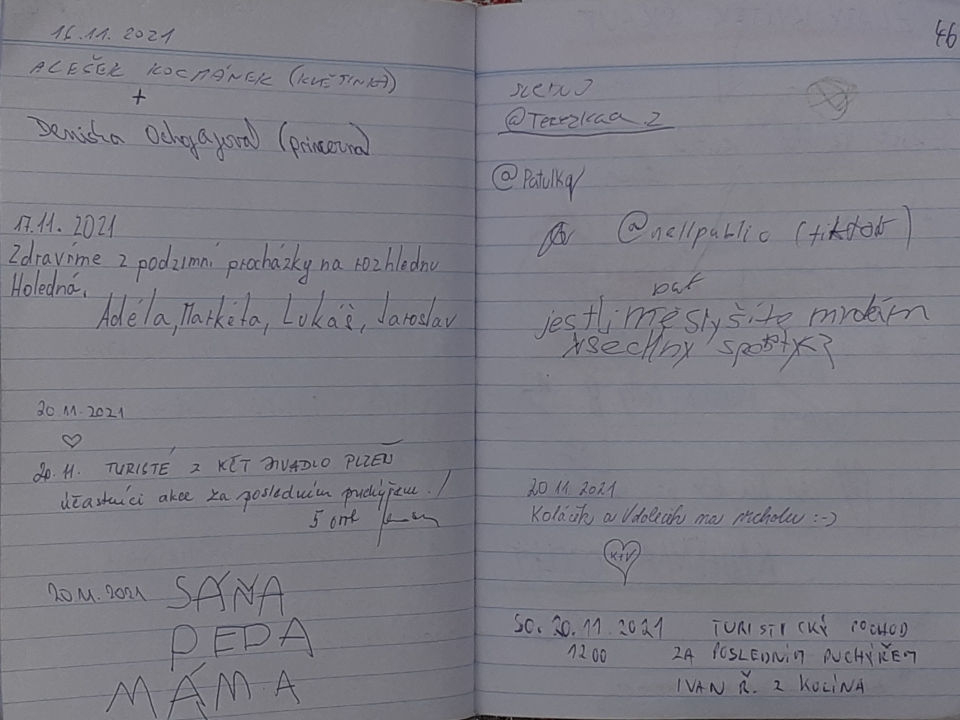 16.11.2021
ALEŠEK KOCMÁNEK (KVĚTINKA)
+
Deniska Ochgajová (princezna)
17.11.2021
Zdravíme z podzimní procházky na rozhlednu
Holedná.
Adéla, Markéta, Lukáš, Jaroslav
20.11.2021
♡
20.11. TURISTÉ Z KČT DIVADLO PLZEŇ
účastníci akce za posledním puchýřem!
5 osob
20.11.2021 SÁŇA
PEPA
MÁMA
46
@Terezkaa.2
@Patulka
@nellpublic (tiktok)
jestli mě slyšíte mrdám
všechny
20.11.2021
Koláčík a Vdoleček na vrcholu :-)
K+V
SO. 20.11.2021 TURISTICKÝ POCHOD
12 00 ZA POSLEDNÍM PUCHÝŘEM
IVAN Ř. Z KOLÍNA